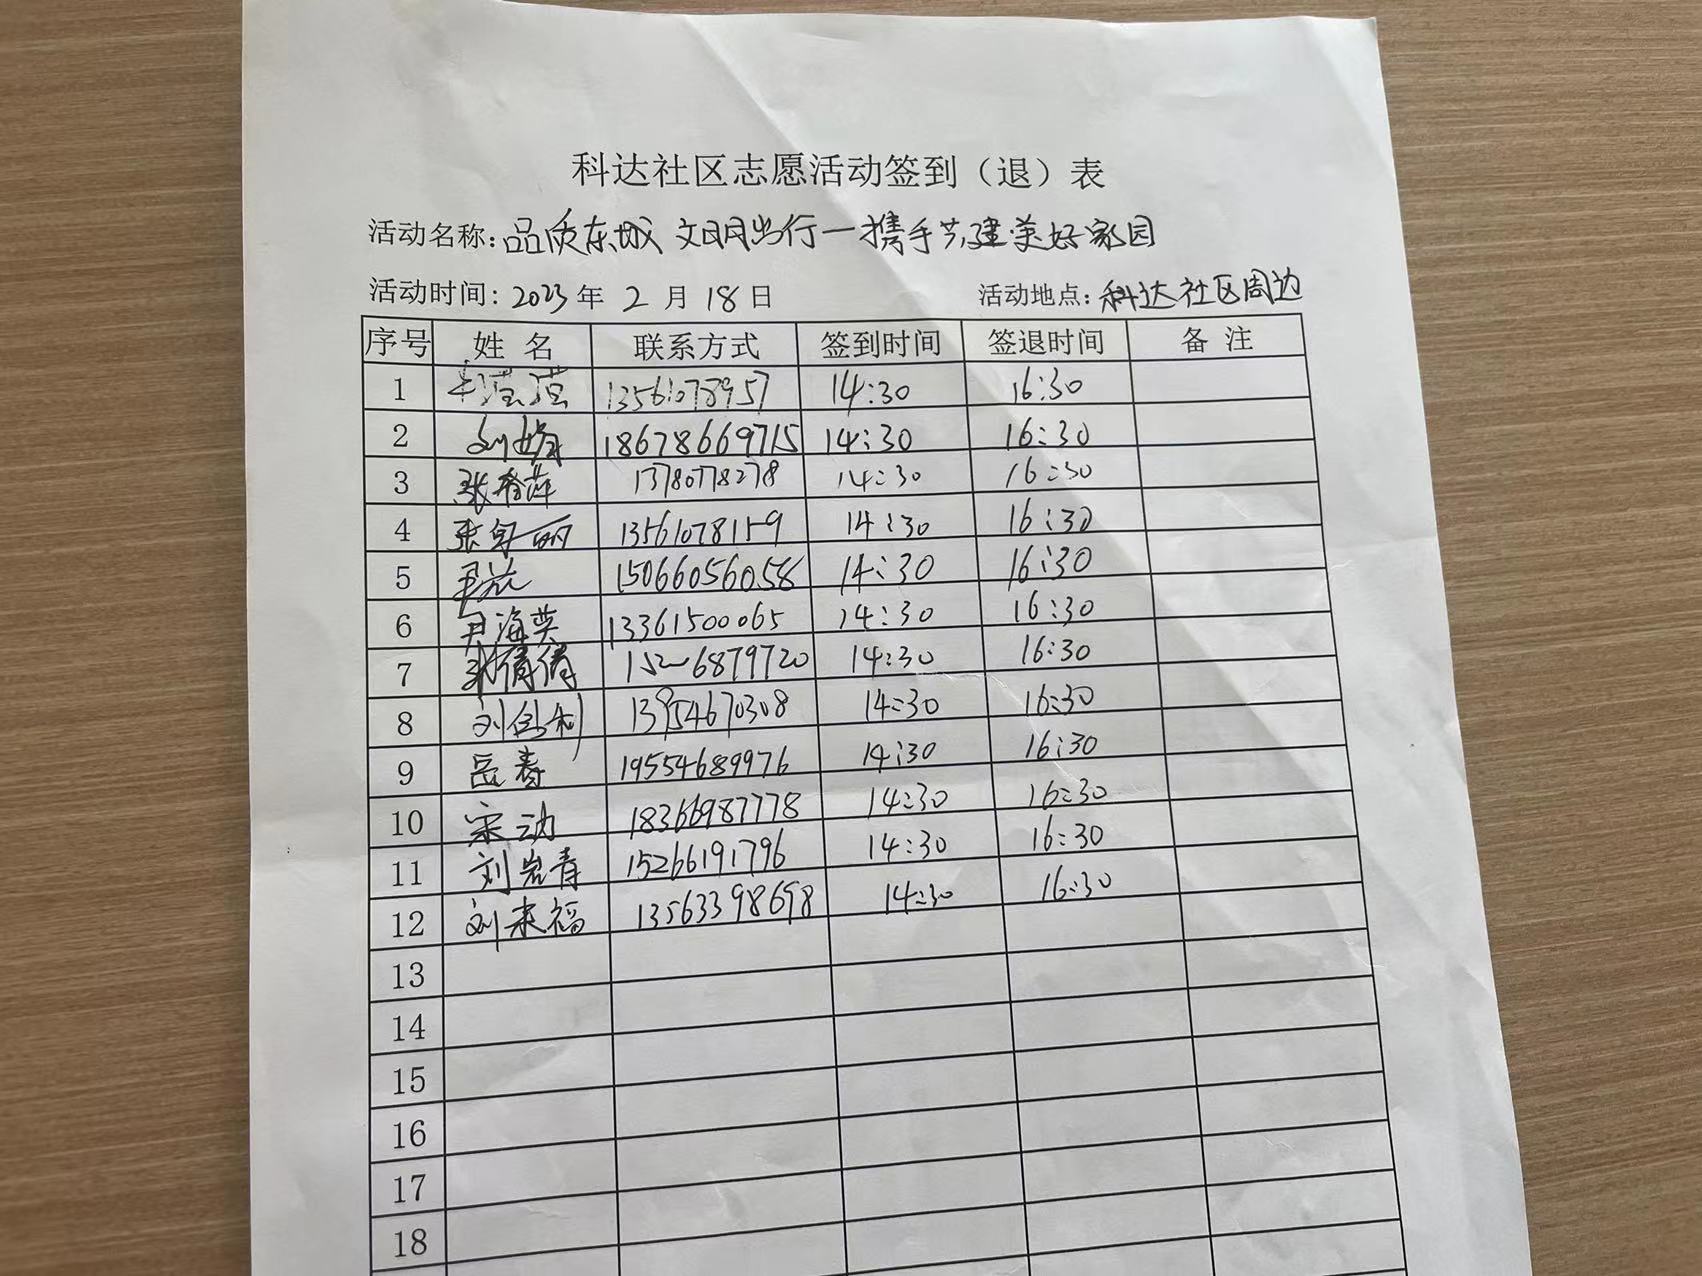 科达社区志愿活动签到（退）表
活动名称：品质东城 文明出行一携手共建美好家园
活动时间：2023年 2 月 18 日 活动地点：科达社区周边
序号 姓 名 联系方式 签到时间 签退时间 备 注
1 13561078957 14:30 16:30
2 18678669715 14:30 16:30
3 张春萍 13780778278 14:30 16:30
4 13561078159 14:30 16:30
5 15066056058 14:30 16:30
6 尹海英 13361500065 14:30 16:30
7 张倩倩 14:30 16:30
8 13954670308 14:30 16:30
9 岳寿 19554689976 14:30 16:30
10 宋动 18366987778 14:30 16:30
11 刘岩青 15266191796 14:30 16:30
12 刘来福 13563398698 14:30 16:30
13
14
15
16
17
18